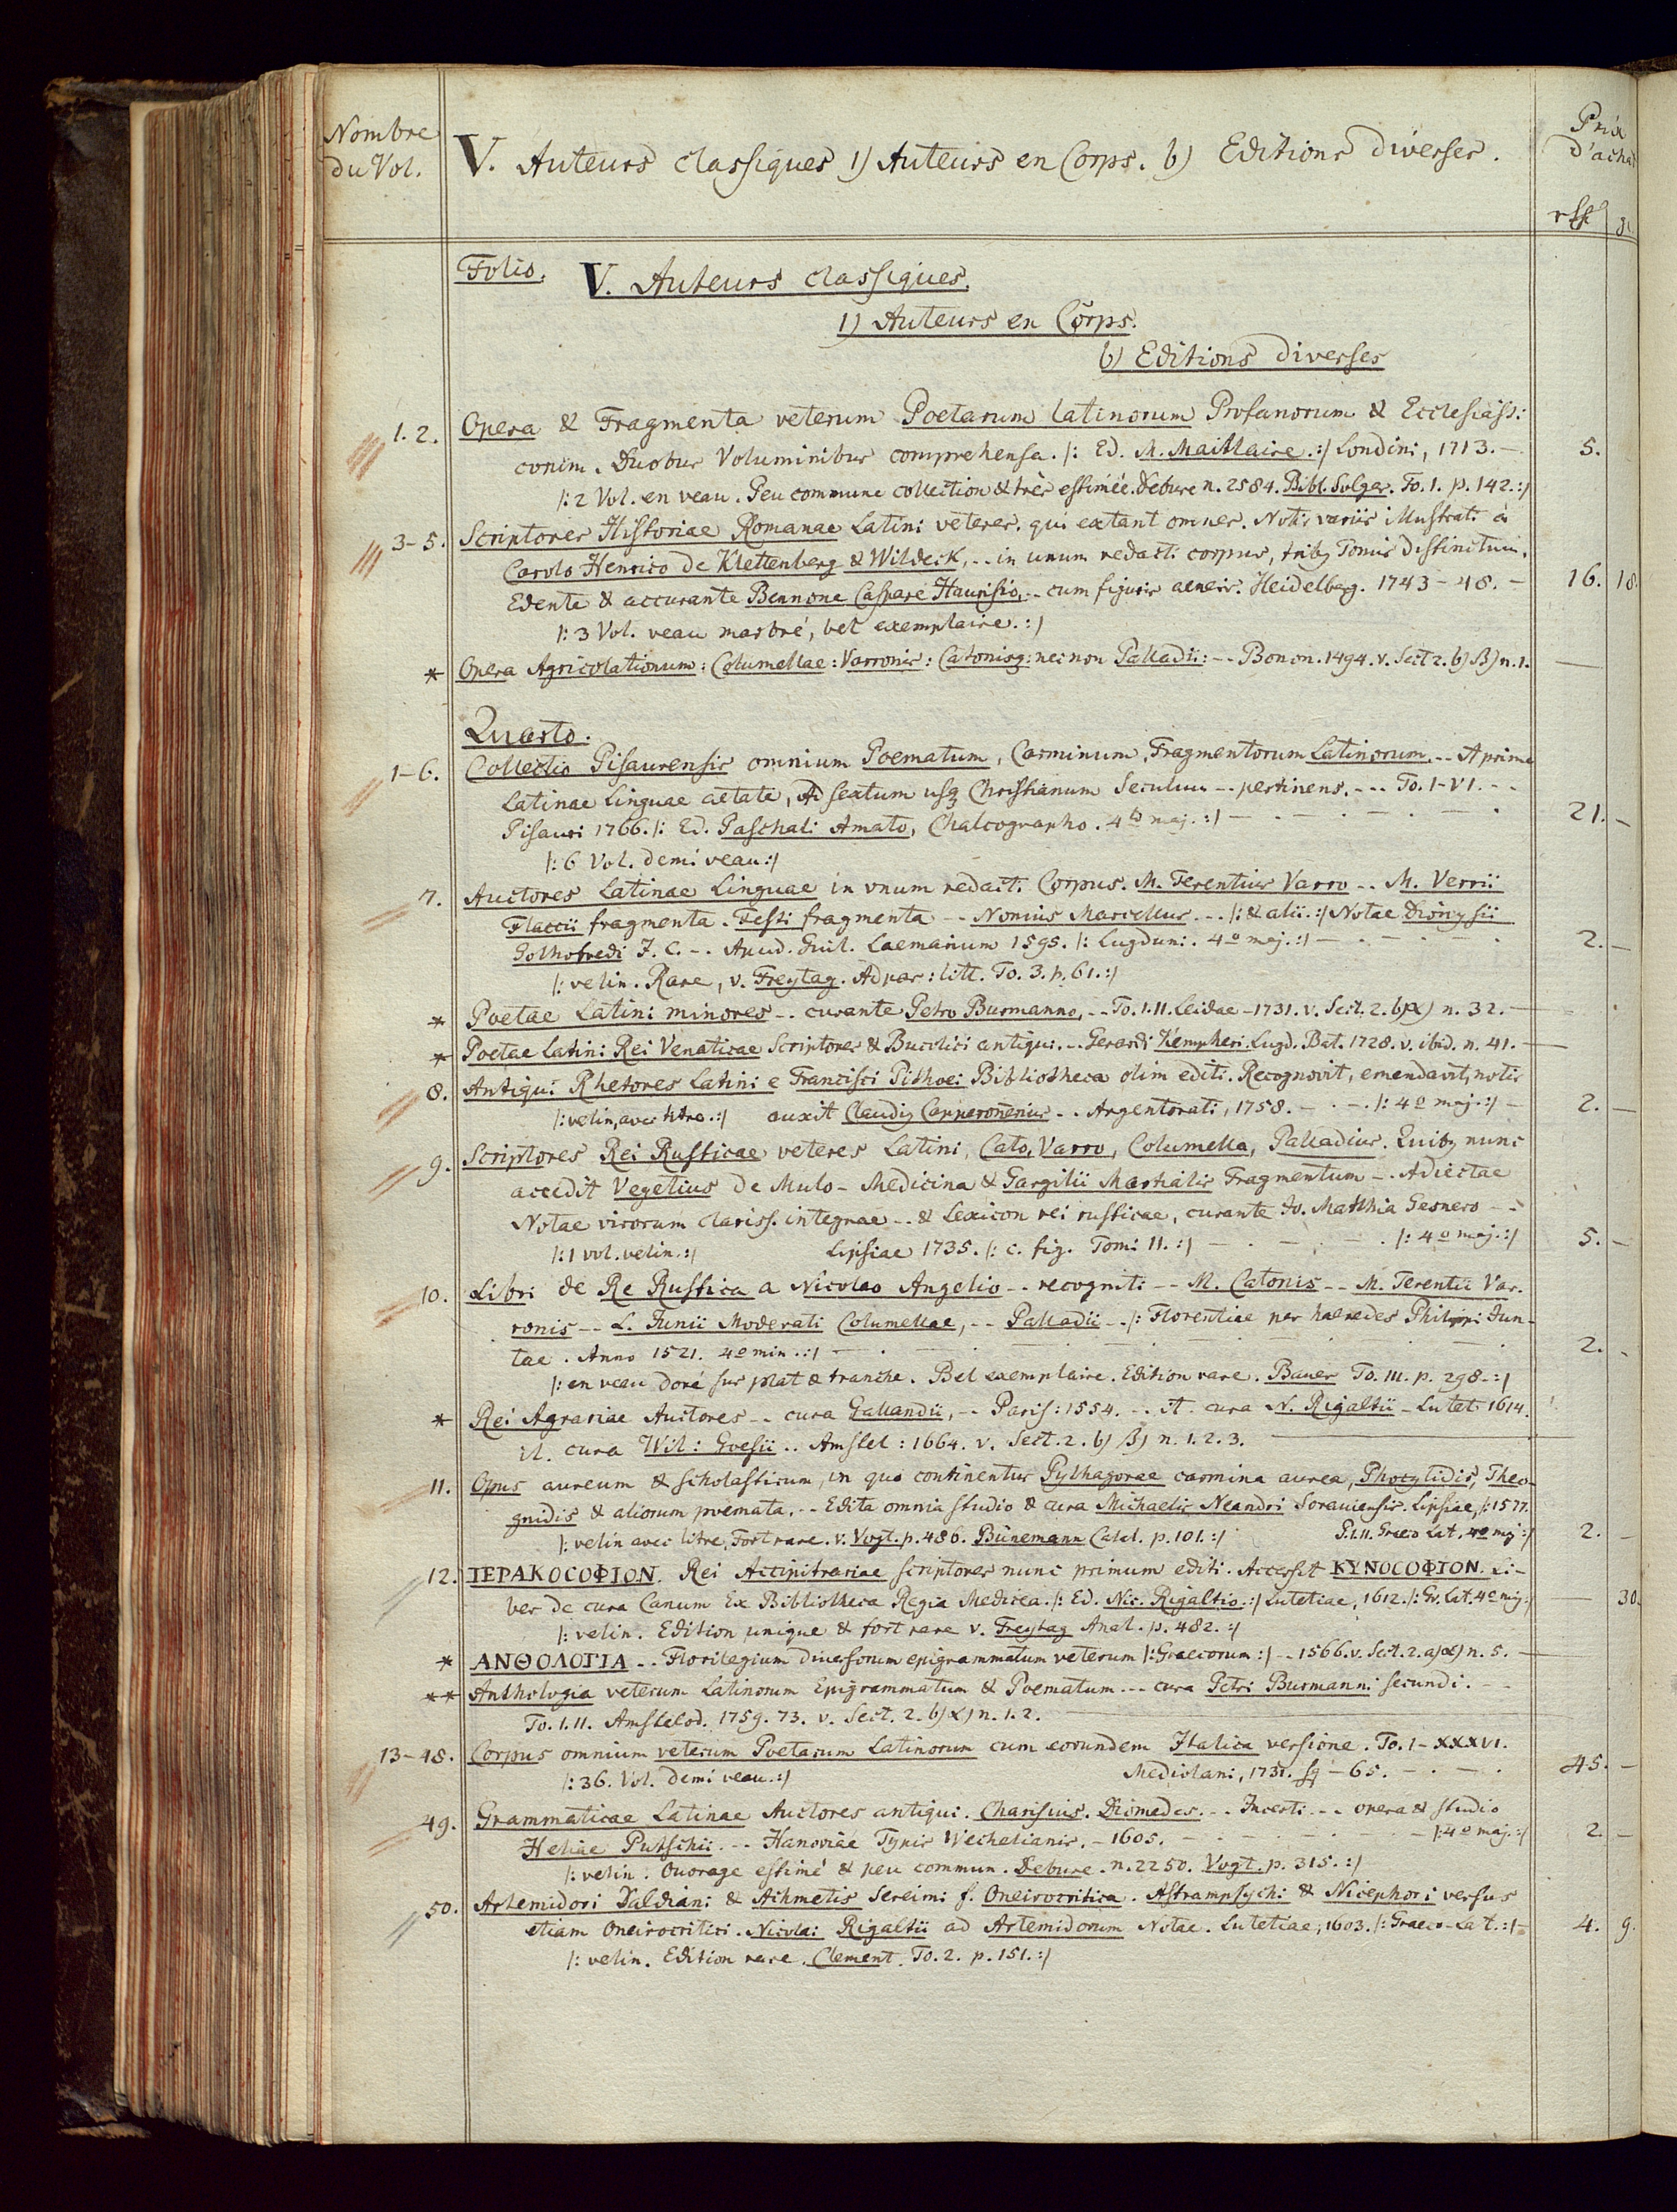 Nombre
du Vol.
V. Auteurs classiques 1) Auteurs en Corps. b) Editions diverses.
Prix
d'achat
Folio.
V. Auteurs classiques.
1) Auteurs en Corps.
b) Editions diverses
1. 2. Opera & Fragmenta veterum Poetarum latinorum Profanorum & Ecclesiasti:
corum. Duobus Voluminibus comprehensa. /: Ed. M. Maittaire. :/ Londini, 1713. — 5.
/: 2 Vol. en veau. Peu commune collection & très estimée. Debure n. 2584. Bibl. Solger. To. 1. p. 142. :/
3-5. Scriptores Historiae Romanae Latini veteres. qui extant omnes. Notis variis illustrati a
Carolo Henrico de Klettenberg & Wildeck, -- in unum redacti corpus, tribq Tomis distinctum.
Edente & accurante Bennone Caspare Haurisio, -- cum figuris aeneis. Heidelberg. 1743-48. — 16. 18.
/: 3 Vol. veau marbré, bel exemplaire. :/
* Opera Agricolationum: Columellae: Varronis: Catonisq: nec non Palladii: -- Bonon. 1494. v. Sect 2. b) β) n. 1. —
Quarto.
1-6. Collectio Pisaurensis omnium Poematum, Carminum, Fragmentorum Latinorum. -- A prima
Latinae Linguae aetate, Ad sextum usq Christianum Seculum -- pertinens. --- To. I-VI. --
Pisauri 1766. /: Ed. Paschali Amato, Chalcographo. 4to maj. :/ — 21. —
/: 6 Vol. demi veau :/
7. Auctores Latinae Linguae in unum redacti Corpus. M. Terentius Varro -- M. Verrii
Flaccii fragmenta. Festi fragmenta -- Nonius Marcellus. -- /: & alii. :/ Notae Dionysii
Gothofredi J. C. -- Apud. Guil. Laemarium 1595. /: Lugduni. 4o maj. :/ — 2. —
/: velin. Rare, v. Freytag. Adpar: litt. To. 3. p. 61. :/
* Poetae Latini minores -- curante Petro Burmanno, -- To. I. II. Leidae -1731. v. Sect. 2. b) α) n. 32. —
* Poetae Latini Rei Venaticae Scriptores & Bucolici antiqui. -- Gerardi Kempheri. Lugd. Bat. 1728. v. ibid. n. 41. —
8. Antiqui Rhetores Latini e Francisci Pithoei Bibliotheca olim editi. Recognovit, emendavit, notis
/: velin, avec titre. :/ auxit Claudiq Capperonerius -- Argentorati, 1756. — /: 4o maj. :/ — 2. —
9. Scriptores Rei Rusticae veteres Latini, Cato, Varro, Columella, Palladius. Quibq nunc
accedit Vegetius de Mulo-Medicina & Gargilii Martialis Fragmentum -- Adiectae
Notae virorum clariss. integrae -- & Lexicon rei rusticae, curante Jo. Matthia Gesnero --
/: 1 vol. velin. :/ Lipsiae 1735. /: c. fig. Tomi II. :/ — /: 4o maj. :/ 5. —
10. Libri de Re Rustica a Nicolao Angelio -- recogniti -- M. Catonis -- M. Terentii Var.
ronis -- L. Junii Moderati Columellae, -- Palladii -- /: Florentiae per haeredes Philippi Jun-
tae. Anno 1521. 4o min. :/ — 2. -
/: en veau doré sur plat & tranche. Bel exemplaire. Edition rare. Bauer To. III. p. 298. :/
* Rei Agrariae Auctores -- cura Gallandii, -- Paris: 1554. -- it. cura N. Rigaltii - Lutet: 1614.
it. cura Wil: Goesii .. Amstel: 1664. v. Sect. 2. b) β) n. 1. 2. 3. —
11. Opus aureum & scholasticum, in quo continentur Pythagorae carmina aurea, Phocylidis, Theo-
gnidis & aliorum poemata. -- Edita omnia studio & cura Michaelis Neandri Soraviensis. Lipsiae, /: 1577.
/: velin avec titre, Fort rare. v. Vogt. p. 486. Bünemann Catal. p. 101. :/ P. I. II. Graeco Lat. 4o maj :/ 2. —
12. ΙΕΡΑΚΟΣΟΦΙΟΝ. Rei Accipitrariae scriptores nunc primum editi. Accessit ΚΥΝΟΣΟΦΙΟΝ. Li-
ber de cura Canum Ex Bibliotheca Regia Medicea. /: Ed. Nic. Rigaltio. :/ Lutetiae, 1612. /: Gr. Lat. 4o maj :/ — 30.
/: velin. Edition unique & fort rare v. Freytag Anal. p. 482. :/
* ΑΝΘΟΛΟΓΙΑ -- Florilegium diversorum epigrammatum veterum /: Graecorum :/ -- 1566. v. Sect. 2. a) α) n. 5. —
** Anthologia veterum Latinorum Epigrammatum & Poematum --- cura Petri Burmanni secundi. --
To. I. II. Amstelod. 1759. 73. v. Sect. 2. b) α) n. 1. 2. —
13-48. Corpus omnium veterum Poetarum Latinorum cum eorundem Italica versione. To. I-XXXVI.
/: 36. Vol. demi veau. :/ Mediolani, 1731. sq - 65. — 45. —
49. Grammaticae Latinae Auctores antiqui. Charisius. Diomedes. -- Incerti. -- opera & studio
Heliae Putschii. -- Hanoviae Typis Wechelianis. - 1605. — /: 4o maj. :/ 2. —
/: velin. Ouvrage estimé & peu commun. Debure. n. 2250. Vogt. p. 315. :/
50. Artemidori Daldiani & Achmetis Sereimi f. Oneirocritica. Astrampsychi & Nicephori versus
etiam Oneirocritici. Nicolai Rigaltii ad Artemidorum Notae. Lutetiae, 1603. /: Graeco-Lat. :/ - 4. 9.
/: velin. Edition rare. Clement. To. 2. p. 151. :/